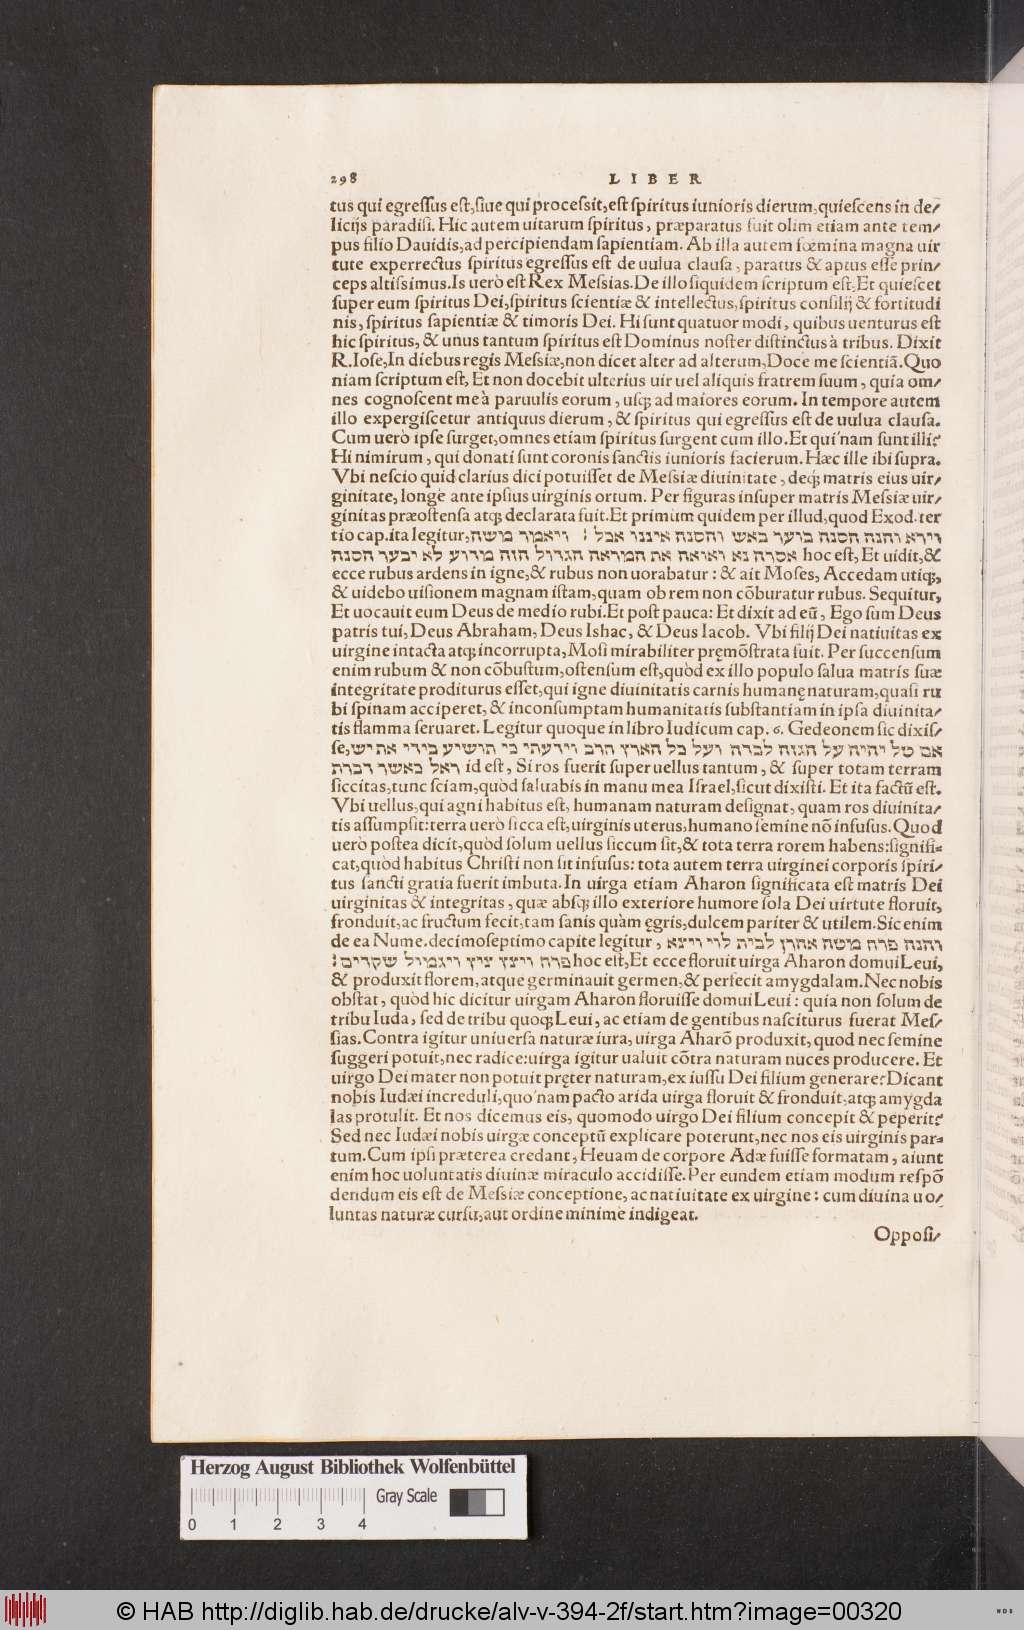 298 LIBER
tus qui egreſſus eſt,ſiue qui proceſsit,eſt ſpiritus iunioris dierum,quieſcens in de/
licijs paradiſi. Hic autem uitarum ſpiritus, præparatus fuit olim etiam ante tem/
pus filio Dauidis,ad percipiendam ſapientiam. Ab illa autem fœmina magna uir
tute experrectus ſpiritus egreſſus eſt de uulua clauſa, paratus & aptus eſſe prin/
ceps altiſsimus.Is uerò eſt Rex Meſsias.De illo ſiquidem ſcriptum eſt,Et quieſcet
ſuper eum ſpiritus Dei,ſpiritus ſcientiæ & intellectus,ſpiritus conſilij & fortitudi
nis, ſpiritus ſapientiæ & timoris Dei. Hi ſunt quatuor modi, quibus uenturus eſt
hic ſpiritus, & unus tantum ſpiritus eſt Dominus noſter diſtinctus à tribus. Dixit
R.Ioſe,In diebus regis Meſsiæ,non dicet alter ad alterum,Doce me ſcientiã.Quo
niam ſcriptum eſt, Et non docebit ulterius uir uel aliquis fratrem ſuum, quia om/
nes cognoſcent me à paruulis eorum, uſq; ad maiores eorum. In tempore autem
illo expergiſcetur antiquus dierum, & ſpiritus qui egreſſus eſt de uulua clauſa.
Cum uerò ipſe ſurget,omnes etiam ſpiritus ſurgent cum illo.Et qui'nam ſunt illi?
Hi nimirum, qui donati ſunt coronis ſanctis iunioris facierum. Hæc ille ibi ſupra.
Vbi neſcio quid clarius dici potuiſſet de Meſsiæ diuinitate, deq́; matris eius uir/
ginitate, longè ante ipſius uirginis ortum. Per figuras inſuper matris Meſsiæ uir/
ginitas præoſtenſa atq; declarata fuit.Et primùm quidem per illud,quod Exod.ter
tio cap.ita legitur,וירא והנה הסנה בוער באש והסנה איננו אכל : ויאמור מושה
אסרה נא ואראה את המוראה הגדול הזה מדוע לא יבער הסנה hoc eſt, Et uidit,&
ecce rubus ardens in igne,& rubus non uorabatur : & ait Moſes, Accedam utiq;,
& uidebo uiſionem magnam iſtam,quam ob rem non cõburatur rubus. Sequitur,
Et uocauit eum Deus de medio rubi.Et poſt pauca: Et dixit ad eũ, Ego ſum Deus
patris tui, Deus Abraham, Deus Ishac, & Deus Iacob. Vbi filij Dei natiuitas ex
uirgine intacta atq; incorrupta, Moſi mirabiliter pręmõſtrata fuit. Per ſuccenſum
enim rubum & non cõbuſtum,oſtenſum eſt,quòd ex illo populo ſalua matris ſuæ
integritate proditurus eſſet,qui igne diuinitatis carnis humanę naturam,quaſi ru
bi ſpinam acciperet, & inconſumptam humanitatis ſubſtantiam in ipſa diuinita/
tis flamma ſeruaret. Legitur quoque in libro Iudicum cap. 6. Gedeonem ſic dixiſ/
ſe,אם טל יהיה על הגזה לברה ועל כל הארץ הרב וידעתי כי תושיע בידי את יש
ראל באשר דברת id eſt, Si ros fuerit ſuper uellus tantum, & ſuper totam terram
ſiccitas,tunc ſciam,quòd ſaluabis in manu mea Iſrael,ſicut dixiſti. Et ita factũ eſt.
Vbi uellus,qui agni habitus eſt, humanam naturam deſignat, quam ros diuinita/
tis aſſumpſit:terra uerò ſicca eſt,uirginis uterus,humano ſemine nõ infuſus.Quod
uerò poſtea dicit,quòd ſolum uellus ſiccum ſit,& tota terra rorem habens:ſignifi=
cat,quòd habitus Chriſti non ſit infuſus: tota autem terra uirginei corporis ſpiri/
tus ſancti gratia fuerit imbuta.In uirga etiam Aharon ſignificata eſt matris Dei
uirginitas & integritas, quæ abſq; illo exteriore humore ſola Dei uirtute floruit,
fronduit,ac fructum fecit,tam ſanis quàm ęgris,dulcem pariter & utilem.Sic enim
de ea Nume.decimoſeptimo capite legitur, והנה פרח מטה אהרן לבית לוי ויוצא
פרח ויצץ ציץ ויגמול שקדים: hoc eſt,Et ecce floruit uirga Aharon domui Leui,
& produxit florem,atque germinauit germen,& perfecit amygdalam.Nec nobis
obſtat, quòd hic dicitur uirgam Aharon floruiſſe domui Leui : quia non ſolum de
tribu Iuda, ſed de tribu quoq; Leui, ac etiam de gentibus naſciturus fuerat Meſ/
ſias.Contra igitur uniuerſa naturæ iura,uirga Aharõ produxit,quod nec ſemine
ſuggeri potuit,nec radice:uirga igitur ualuit cõtra naturam nuces producere. Et
uirgo Dei mater non potuit pręter naturam,ex iuſſu Dei filium generare?Dicant
nobis Iudæi increduli,quo'nam pacto arida uirga floruit & fronduit,atq; amygda
las protulit. Et nos dicemus eis, quomodo uirgo Dei filium concepit & peperit?
Sed nec Iudæi nobis uirgæ conceptũ explicare poterunt,nec nos eis uirginis par=
tum.Cum ipſi præterea credant, Heuam de corpore Adæ fuiſſe formatam, aiunt
enim hoc uoluntatis diuinæ miraculo accidiſſe.Per eundem etiam modum reſpõ
dendum eis eſt de Meſsiæ conceptione, ac natiuitate ex uirgine : cum diuina uo/
luntas naturæ curſu,aut ordine minimè indigeat.
Oppoſi/
Herzog August Bibliothek Wolfenbüttel
Gray Scale
0 1 2 3 4
© HAB http://diglib.hab.de/drucke/alv-v-394-2f/start.htm?image=00320